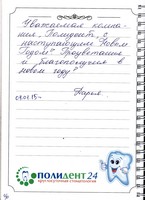 Уважаемая компа-
ния „Полидент", с
наступающим Новым
Годом! Процветания
и благополучия в
новом году!
Дарья.
ПОЛИДЕНТ 24
круглосуточная стоматология